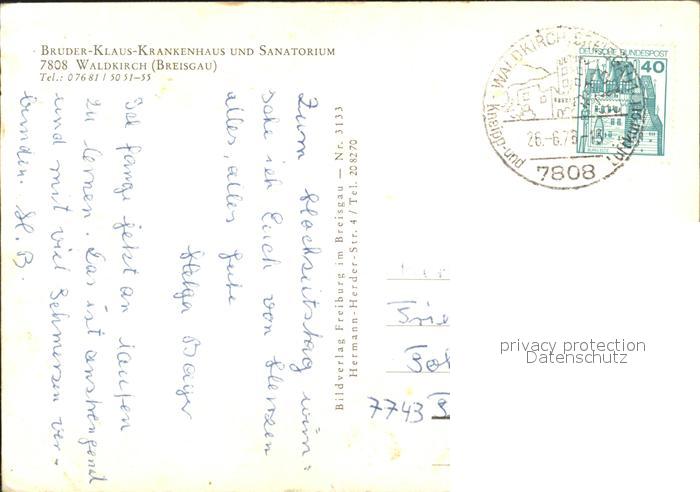 BRUDER-KLAUS-KRANKENHAUS UND SANATORIUM
7808 WALDKIRCH (BREISGAU)
Tel.: 07681/5051-55
DEUTSCHE BUNDESPOST
40
WALDKIRCH
Kneipp- und Luftkurort
26.-6.7
7808
Zum Hochzeitstag wün=
sche ich Euch von Herzen
alles, alles Gute
Helga Baijer
Ich fange jetzt an laufen
zu lernen. Das ist anstrengend
und mit viel Schmerzen ver-
bunden. H. B.
Bildverlag Freiburg im Breisgau — Nr. 3133
Hermann-Herder-Str. 4 / Tel. 208270
7743
privacy protection
Datenschutz